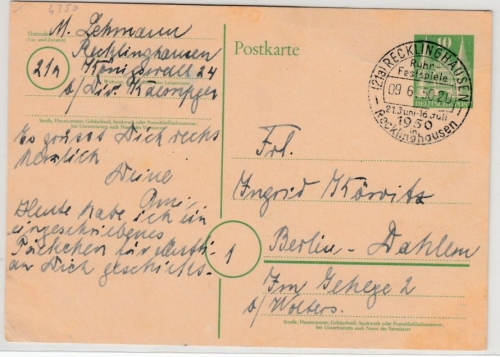 4750
Absender:
M. Lehmann
Recklinghausen
21a
Königswall 24
b/Div. Kaempger
Straße, Hausnummer, Gebäudeteil, Stockwerk oder Postschließfachnummer;
bei Untermietern auch Name des Vermieters
Es grüsst Dich recht
herzlich
Deine
Omi
Heute habe ich ein
eingeschriebenes
Päckchen für
an Dich geschickt.
Postkarte
10
DEUTSCHE
(21a) RECKLINGHAUSEN
Ruhr-
Festspiele
09.6.50-20
21.Juni-16.Juli
1950
in
Recklinghausen
Frl.
Ingrid Körvitz
1
Berlin - Dahlem
Im Gehege 2
b/ Wolters.
Straße, Hausnummer, Gebäudeteil, Stockwerk oder Postschließfachnummer;
bei Untermietern auch Name des Vermieters